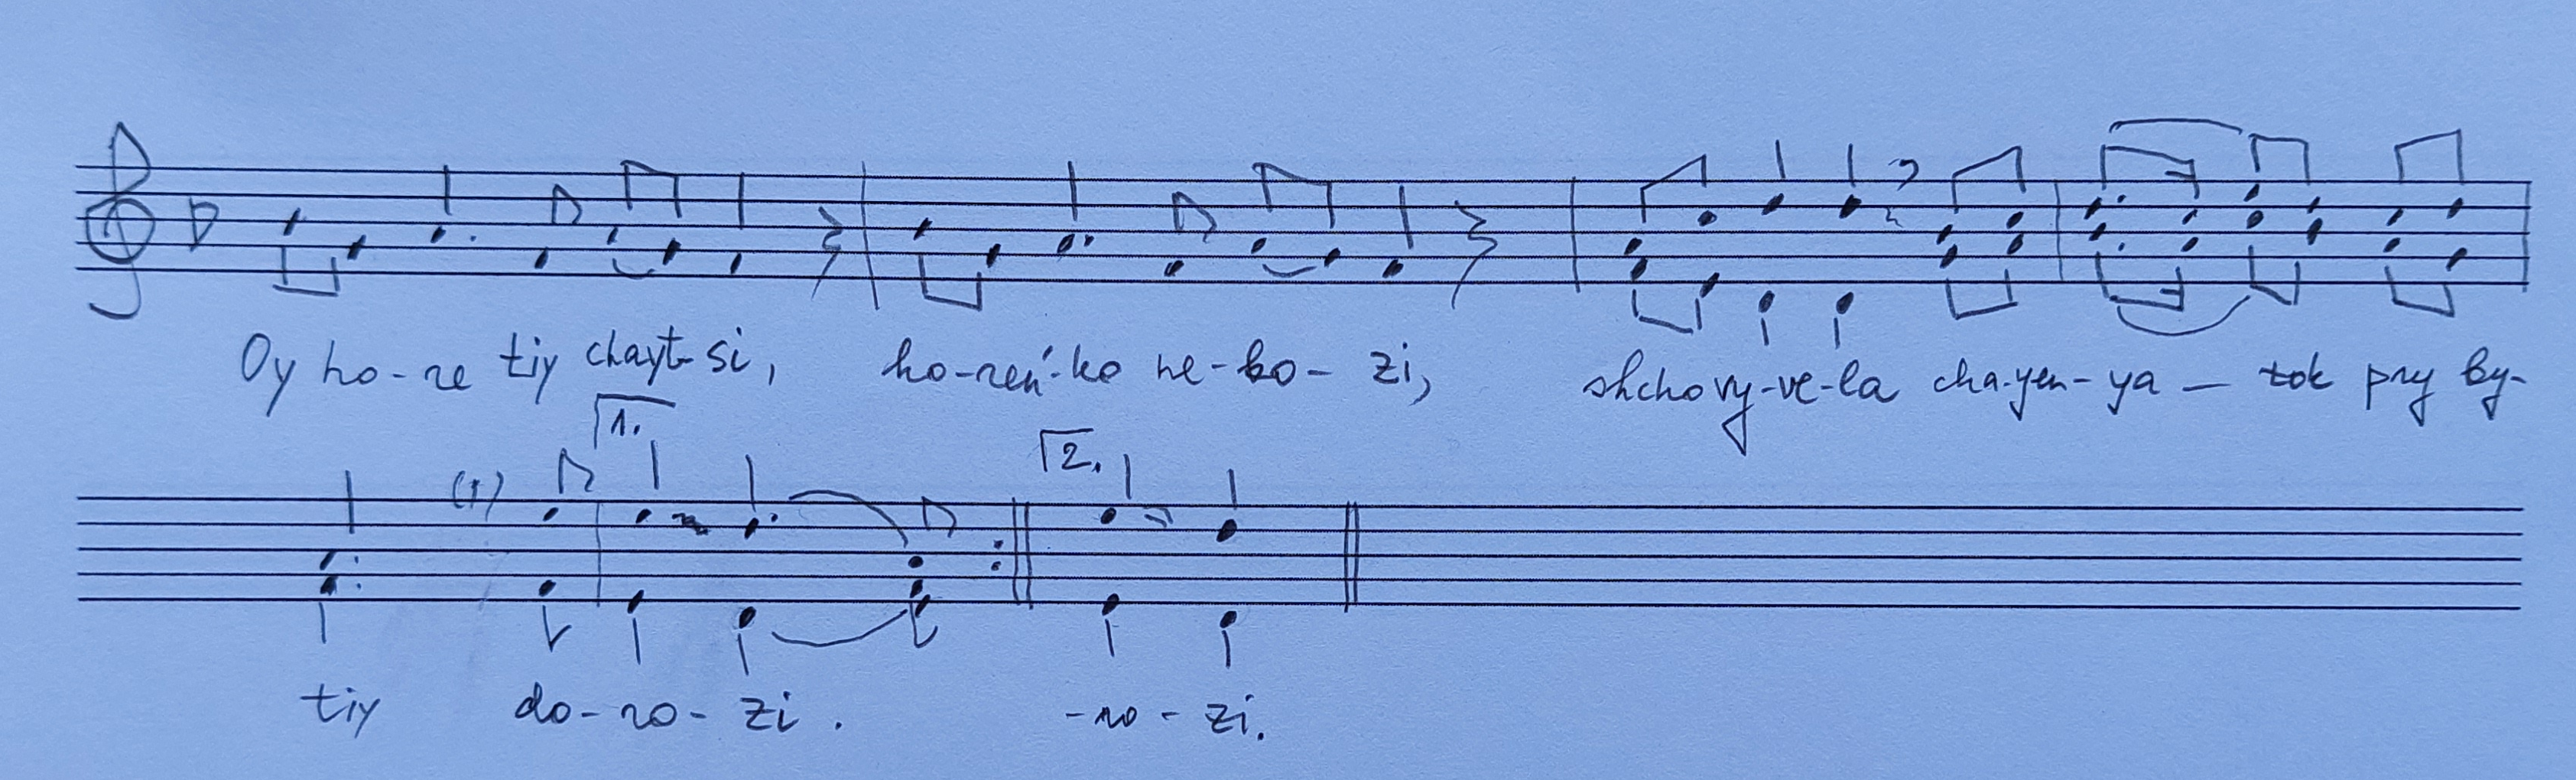 Oy ho-re tiy chayt-si, ho-reń-ko ne-bo-zi, shchovy-ve-la cha-yen-ya — tok pry by-
1. 2.
tiy do-ro-zi. -ro-zi.